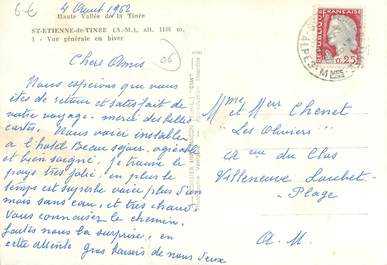 6€
4 Aout 1962
Haute Vallée de la Tinée
ST-ETIENNE-de-TINÉE (A.-M.), alt. 1140 m.
1 - Vue générale en hiver
06
Chers Amis
Nous espérons que vous
êtes de retour et satisfait de
votre voyage. merci des belles
cartes. Nous voici installer
a l'hotel Beau séjour, agréable
et bien soigné. je trouve le
pays très jolie, en plus le
temps est superbe voici plus d'un
mois sans eau, et très chaud.
Vous connaissez le chemin.
faites nous la surprise, en
cette attente Gros baisers de nous deux
REPUBLIQUE FRANÇAISE
0,25
Mme et Mur Chenet
Les Oliviers
rue du Clos
Villeneuve Loubet-
Plage
A. M.